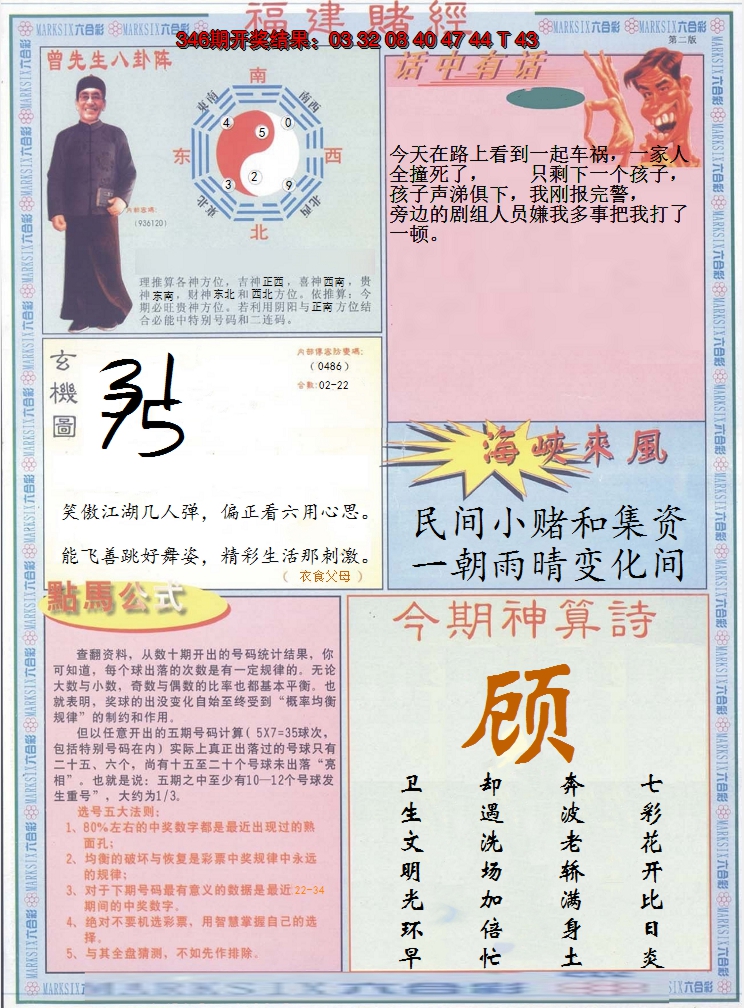 福建賭經
346期开奖结果：03 32 08 40 47 44 T 43
MARKSIX六合彩
第二版
曾先生八卦阵
南
東南
南西
东
西
東北
北西
北
4
5
0
3
2
9
（936120）
理推算各神方位，吉神正西，喜神西南，贵
神东南，财神东北和西北方位。依推算：今
期必旺贵神方位。若利用阴阳与正南方位结
合必能中特别号码和二连码。
话中有话
今天在路上看到一起车祸，一家人
全撞死了，　　只剩下一个孩子，
孩子声涕俱下，我刚报完警，
旁边的剧组人员嫌我多事把我打了
一顿。
玄機圖
（0486）
合数:02-22
笑傲江湖几人弹，偏正看六用心思。
能飞善跳好舞姿，精彩生活那刺激。
（ 衣食父母 ）
海峡來風
民间小赌和集资
一朝雨晴变化间
點馬公式
查翻资料，从数十期开出的号码统计结果，你
可知道，每个球出落的次数是有一定规律的。无论
大数与小数，奇数与偶数的比率也都基本平衡。也
就表明，奖球的出没变化自始至终受到“概率均衡
规律”的制约和作用。
但以任意开出的五期号码计算( 5X7=35球次，
包括特别号码在内) 实际上真正出落过的号球只有
二十五、六个，尚有十五至二十个号球未出落“亮
相”。也就是说：五期之中至少有10—12个号球发
生重号”，大约为1/3。
选号五大法则：
1、80%左右的中奖数字都是最近出现过的熟
面孔；
2、均衡的破坏与恢复是彩票中奖规律中永远
的规律；
3、对于下期号码最有意义的数据是最近 22-34
期间的中奖数字。
4、绝对不要机选彩票，用智慧掌握自己的选
择。
5、与其全盘猜测，不如先作排除。
今期神算詩
顾
七彩花开比日炎
奔波老轿满身土
却遇洗场加倍忙
卫生文明光环早